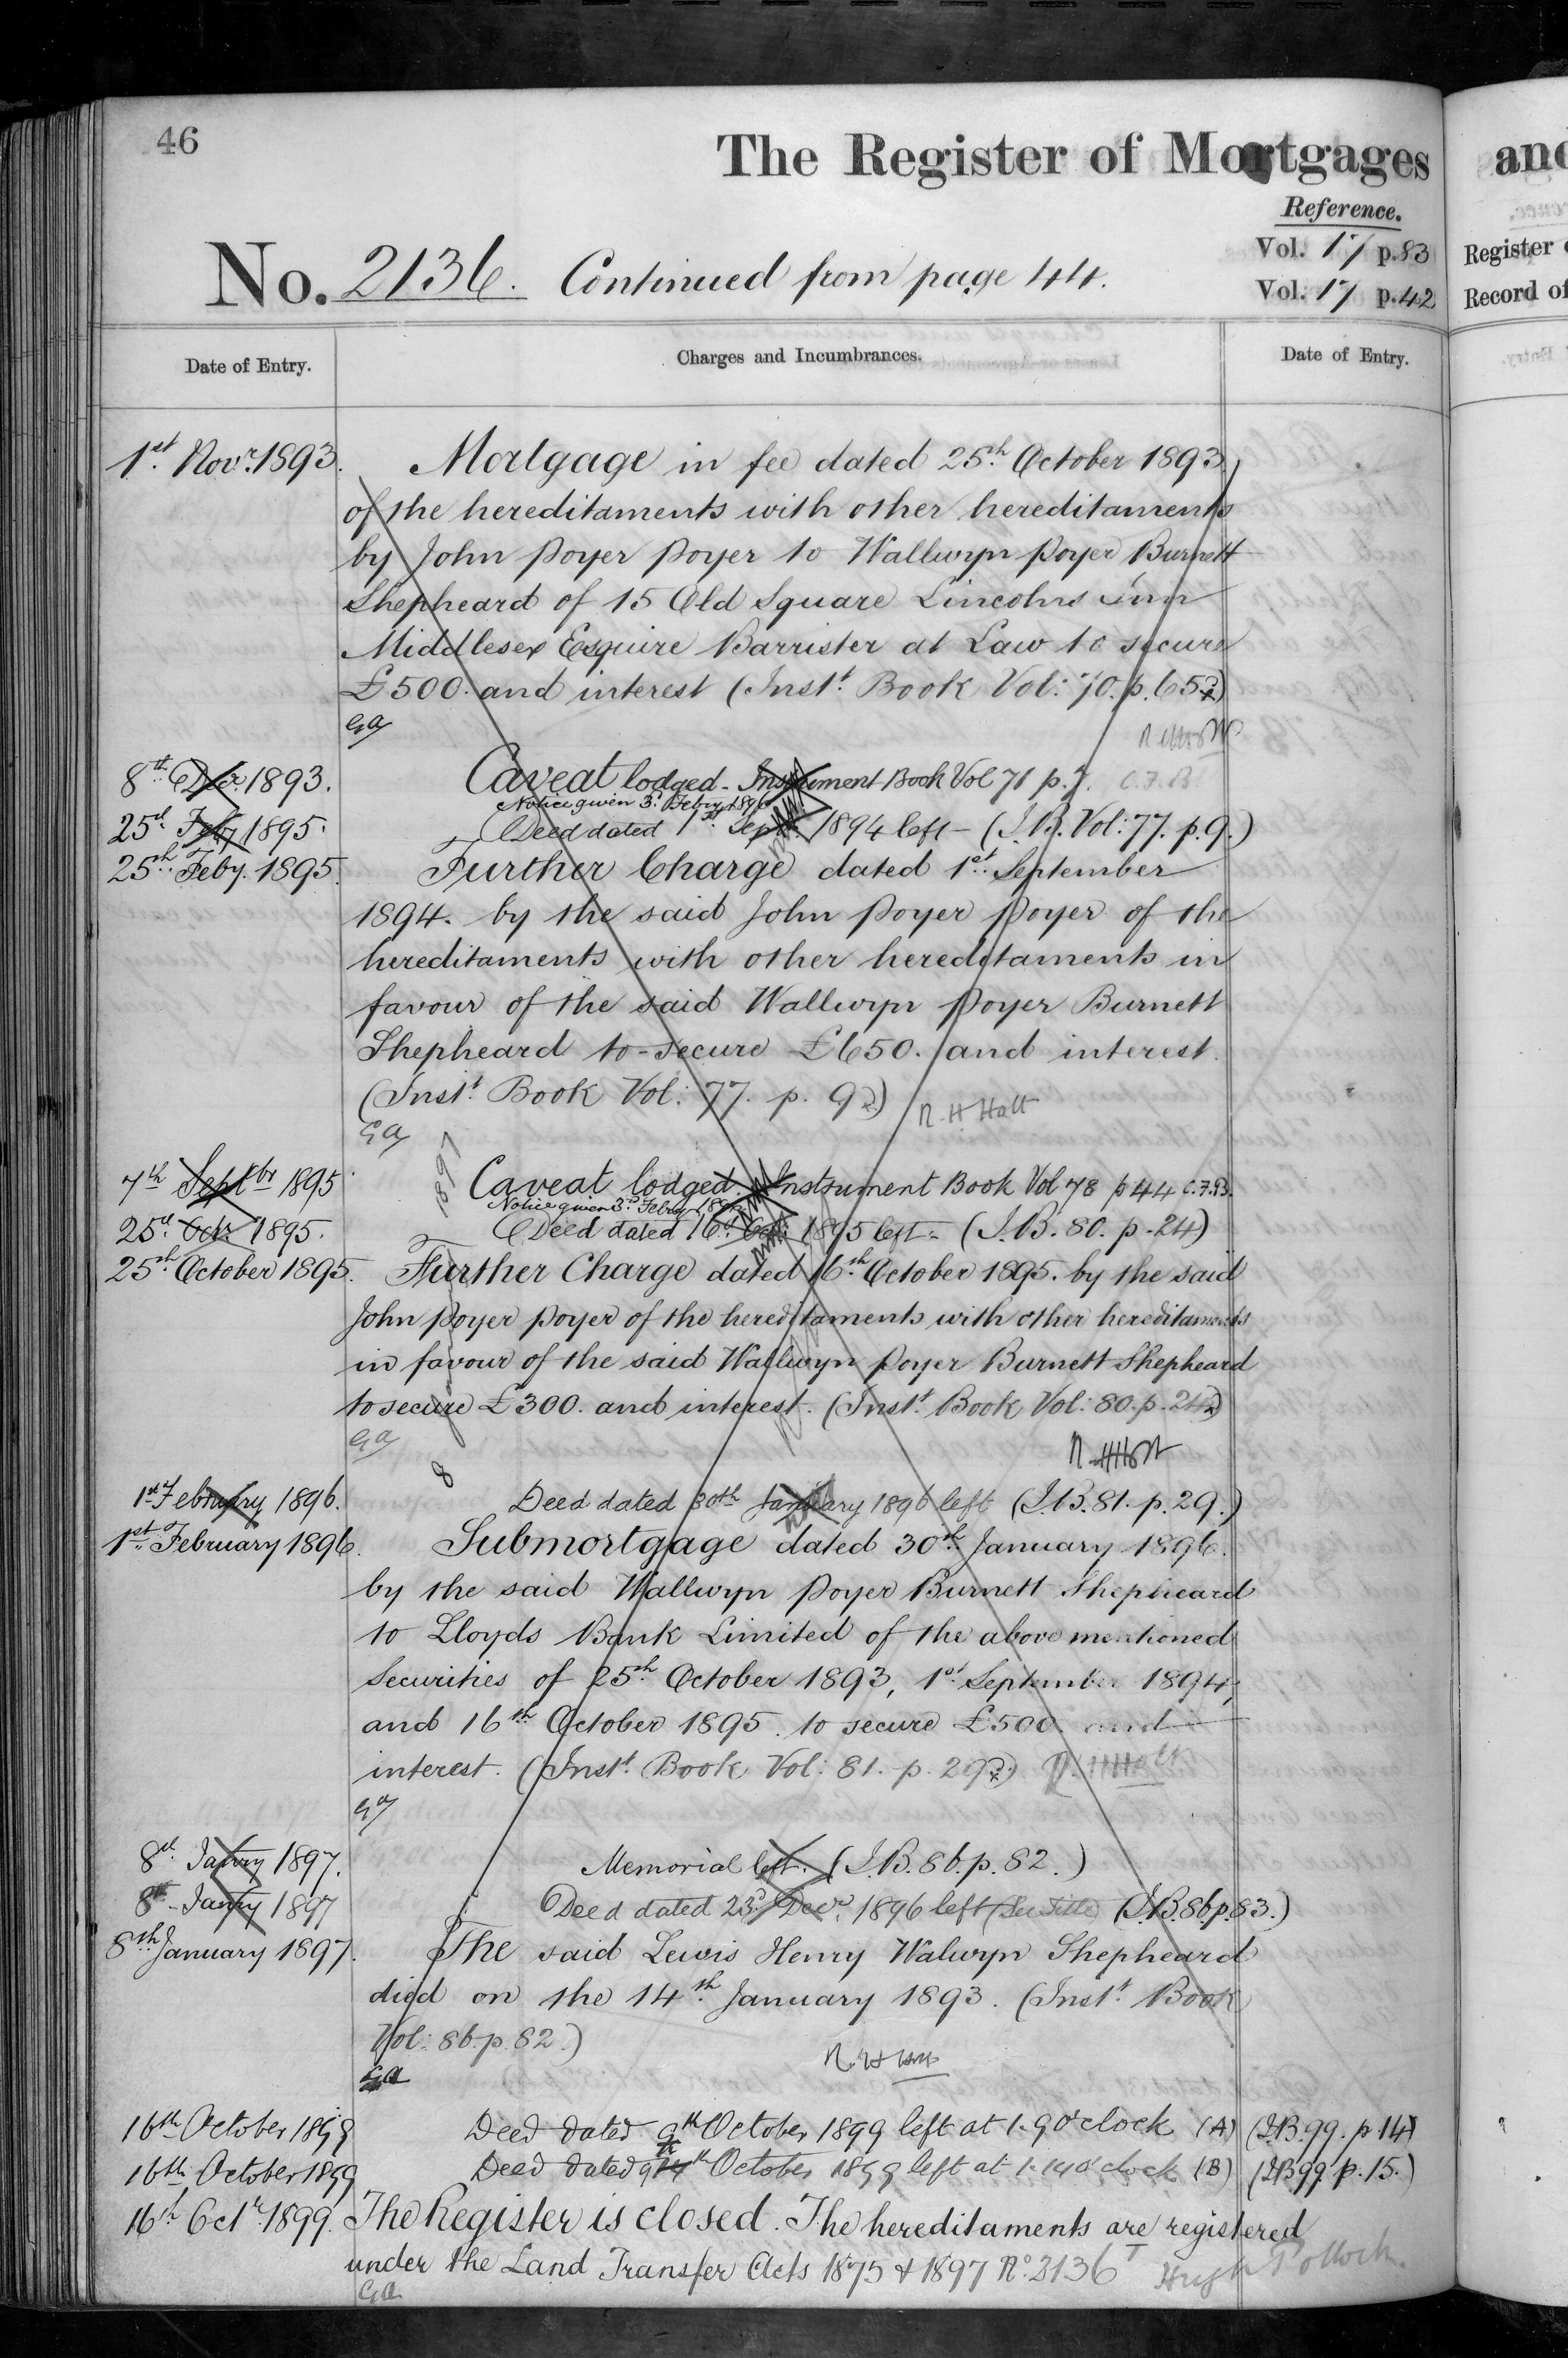 46
The Register of Mortgages
and
Reference.
Vol. 17 p. 83
Register
Vol. 17 p. 42
Record of
No. 2136. Continued from page 44.
Date of Entry.
Charges and Incumbrances.
Date of Entry.
1st Novr. 1893. Mortgage in fee dated 25th October 1893
of the hereditaments with other hereditaments
by John Poyer Poyer to Wallwyn Poyer Burnett
Shepheard of 15 Old Square Lincolns Inn
Middlesex Esquire Barrister at Law to secure
£500. and interest (Inst. Book Vol: 70. p. 65.)
Ga
8th Decr. 1893. Caveat lodged - Instrument Book Vol 71 p. 7. C.F.B.
Notice given 3d. Febry 1896
25th Feby 1895. Deed dated 1st Sept. 1894 left - (I.B. Vol: 77. p. 9.)
25th Feby. 1895. Further Charge dated 1st September
1894. by the said John Poyer Poyer of the
hereditaments with other hereditaments in
favour of the said Wallwyn Poyer Burnett
Shepheard to secure £650. and interest.
(Inst. Book Vol: 77. p. 9.) R. H Holt
Ga
1897
7th Septbr 1895 Caveat lodged. Instrument Book Vol 78 p 44 C.F.B.
Notice given 3d. Febry 1896
25th Octr. 1895. Deed dated 16th Oct. 1895 left - (I.B. 80. p. 24)
25th October 1895. Further Charge dated 16th October 1895. by the said
John Poyer Poyer of the hereditaments with other hereditaments
in favour of the said Wallwyn Poyer Burnett Shepheard
to secure £300. and interest. (Inst. Book Vol: 80. p. 24.)
Ga
R H Holt
8
1st February 1896. Deed dated 30th January 1896 left (I.B. 81. p. 29.)
1st February 1896. Submortgage dated 30th January 1896.
by the said Wallwyn Poyer Burnett Shepheard
to Lloyds Bank Limited of the above mentioned
Securities of 25th October 1893, 1st September 1894,
and 16th October 1895. to secure £500. and
interest. (Inst. Book Vol: 81. p. 29.) R. H Holt
Ga
8th Janry 1897. Memorial left. (I.B. 86. p. 82.)
8th Janry 1897 Deed dated 23d. Decr. 1896 left (See Title) (I.B. 86 p. 83.)
8th January 1897. The said Lewis Henry Walwyn Shepheard
died on the 14th January 1893. (Inst. Book
Vol: 86. p. 82.)
R. H Holt
Ga
16th October 1899 Deed dated 9th October 1899 left at 1.9 o'clock (A) (I.B. 99. p 14)
16th October 1899 Deed dated 9th October 1899 left at 1.14 o'clock (B) (I.B 99 p. 15.)
16th Octr. 1899. The Register is closed. The hereditaments are registered
under the Land Transfer Acts 1875 & 1897 No. 2136 Hugh Pollock.
Ga